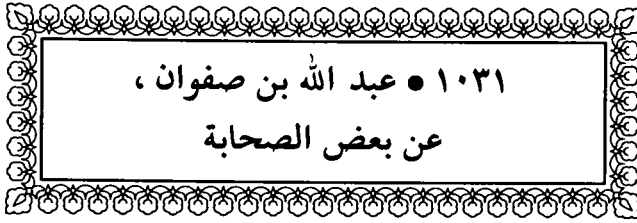 ١٠٣١ ● عبد الله بن صفوان ،
عن بعض الصحابة